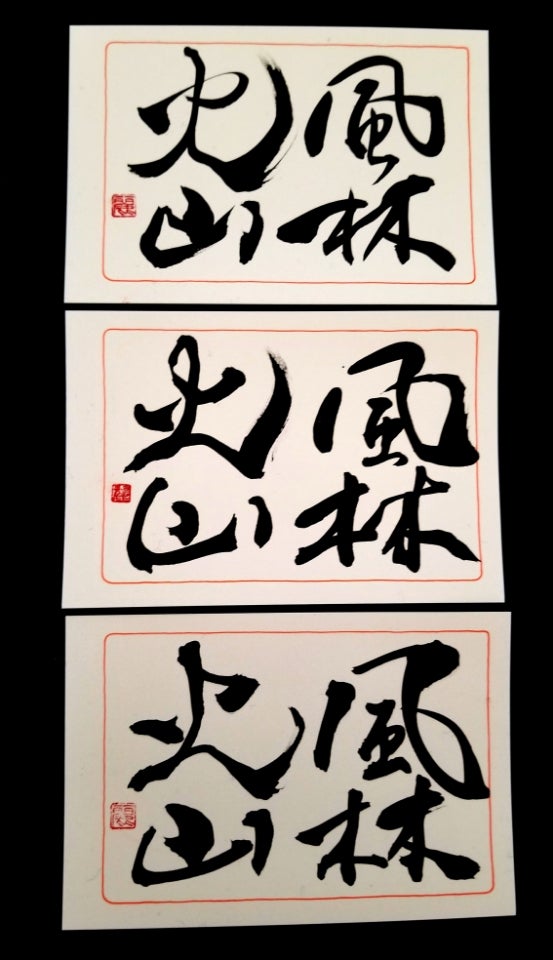 風林
火山
風林
火山
風林
火山